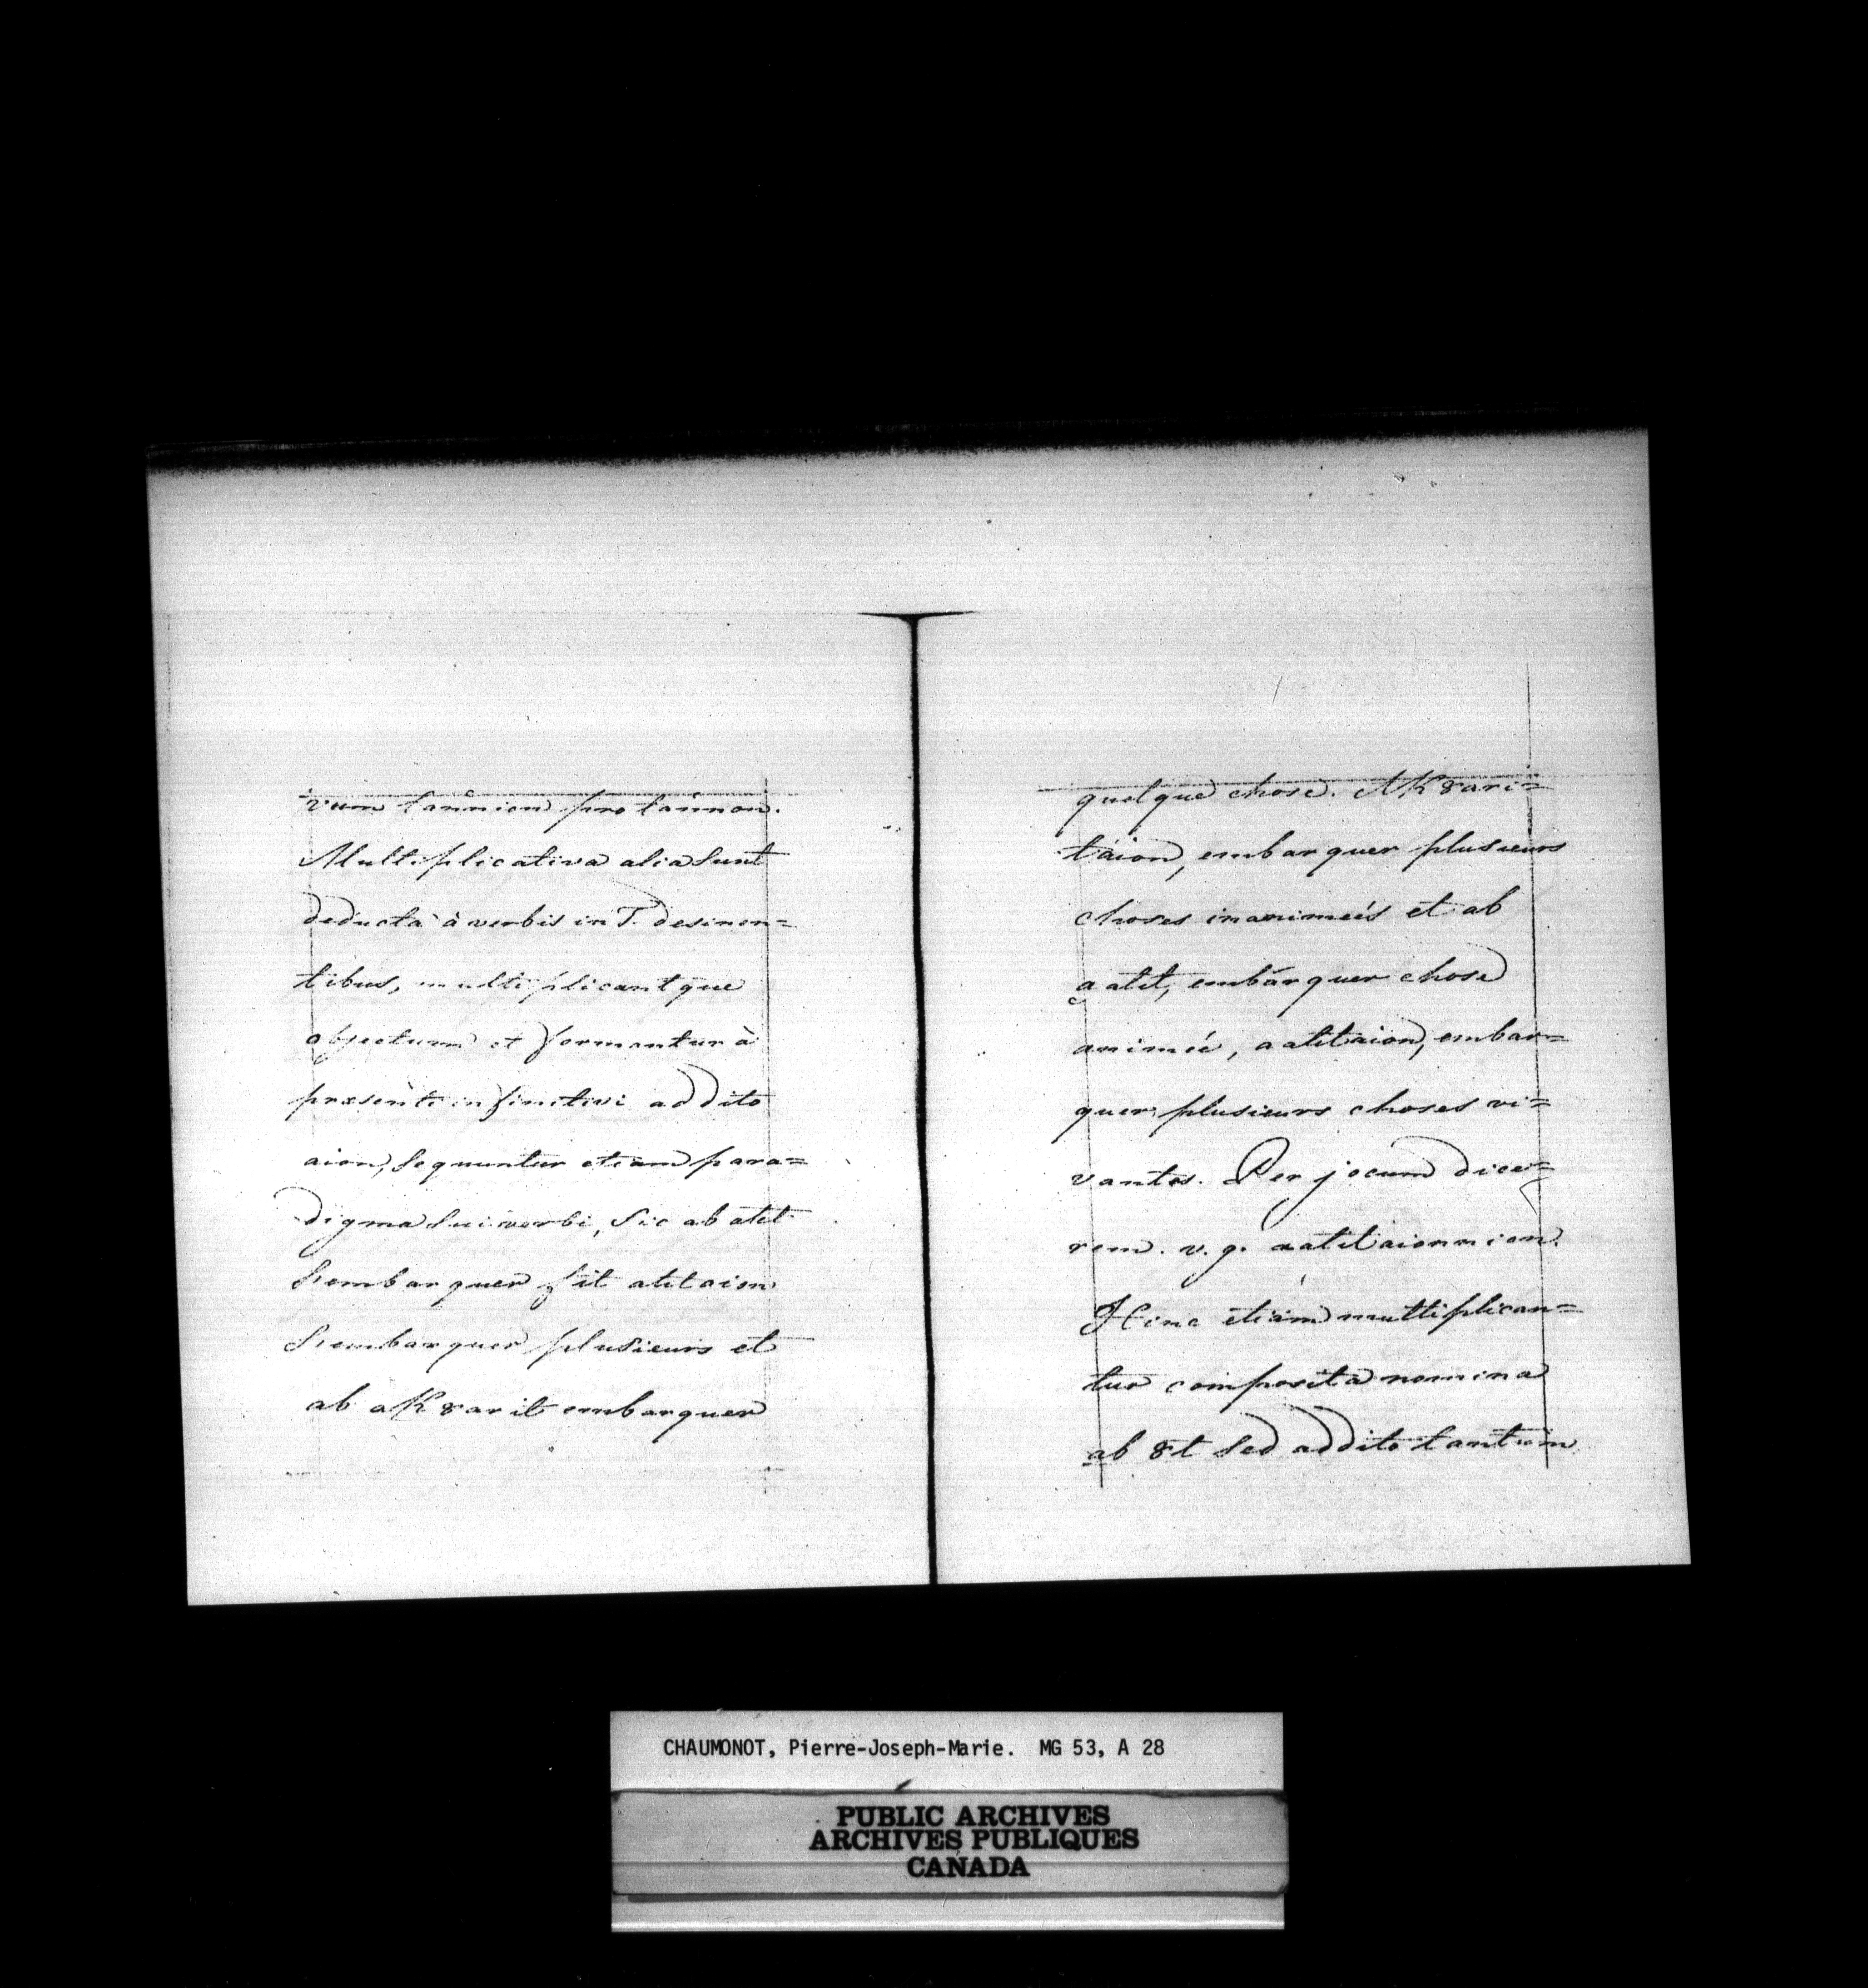 vum tannion pro tannon.
Multiplicativa alia sunt
deducta à verbis in T. desinen=
tibus, multiplicantque
objectum et formantur à
præsenti infinitivi addito
aion, sequuntur etiam para=
digma sui verbi, sic ab atit
s'embarquer fit atitaion
s'embarquer plusieurs et
ab aK8arit embarquer
quelque chose. AK8ari=
taion, embarquer plusieurs
choses inanimeés et ab
a atit, embarquer chose
animeé, aatitaion, embar=
quer plusieurs choses vi=
vantes. Per jocum dice=
rem. v. g. aatitaionnion.
Hinc etiam multiplican=
tur composita nomina
ab 8t sed addito tantum
CHAUMONOT, Pierre-Joseph-Marie. MG 53, A 28
PUBLIC ARCHIVES
ARCHIVES PUBLIQUES
CANADA